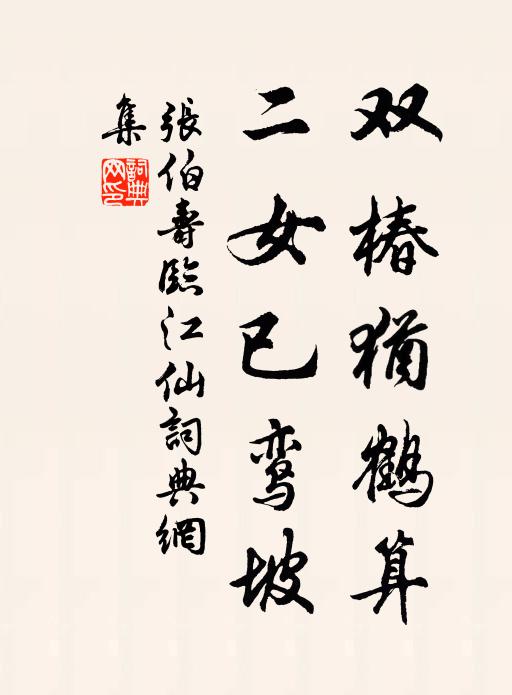 双椿犹鹤算
二女已鸾坡
張伯壽臨江仙詞典網
集
詞典網印